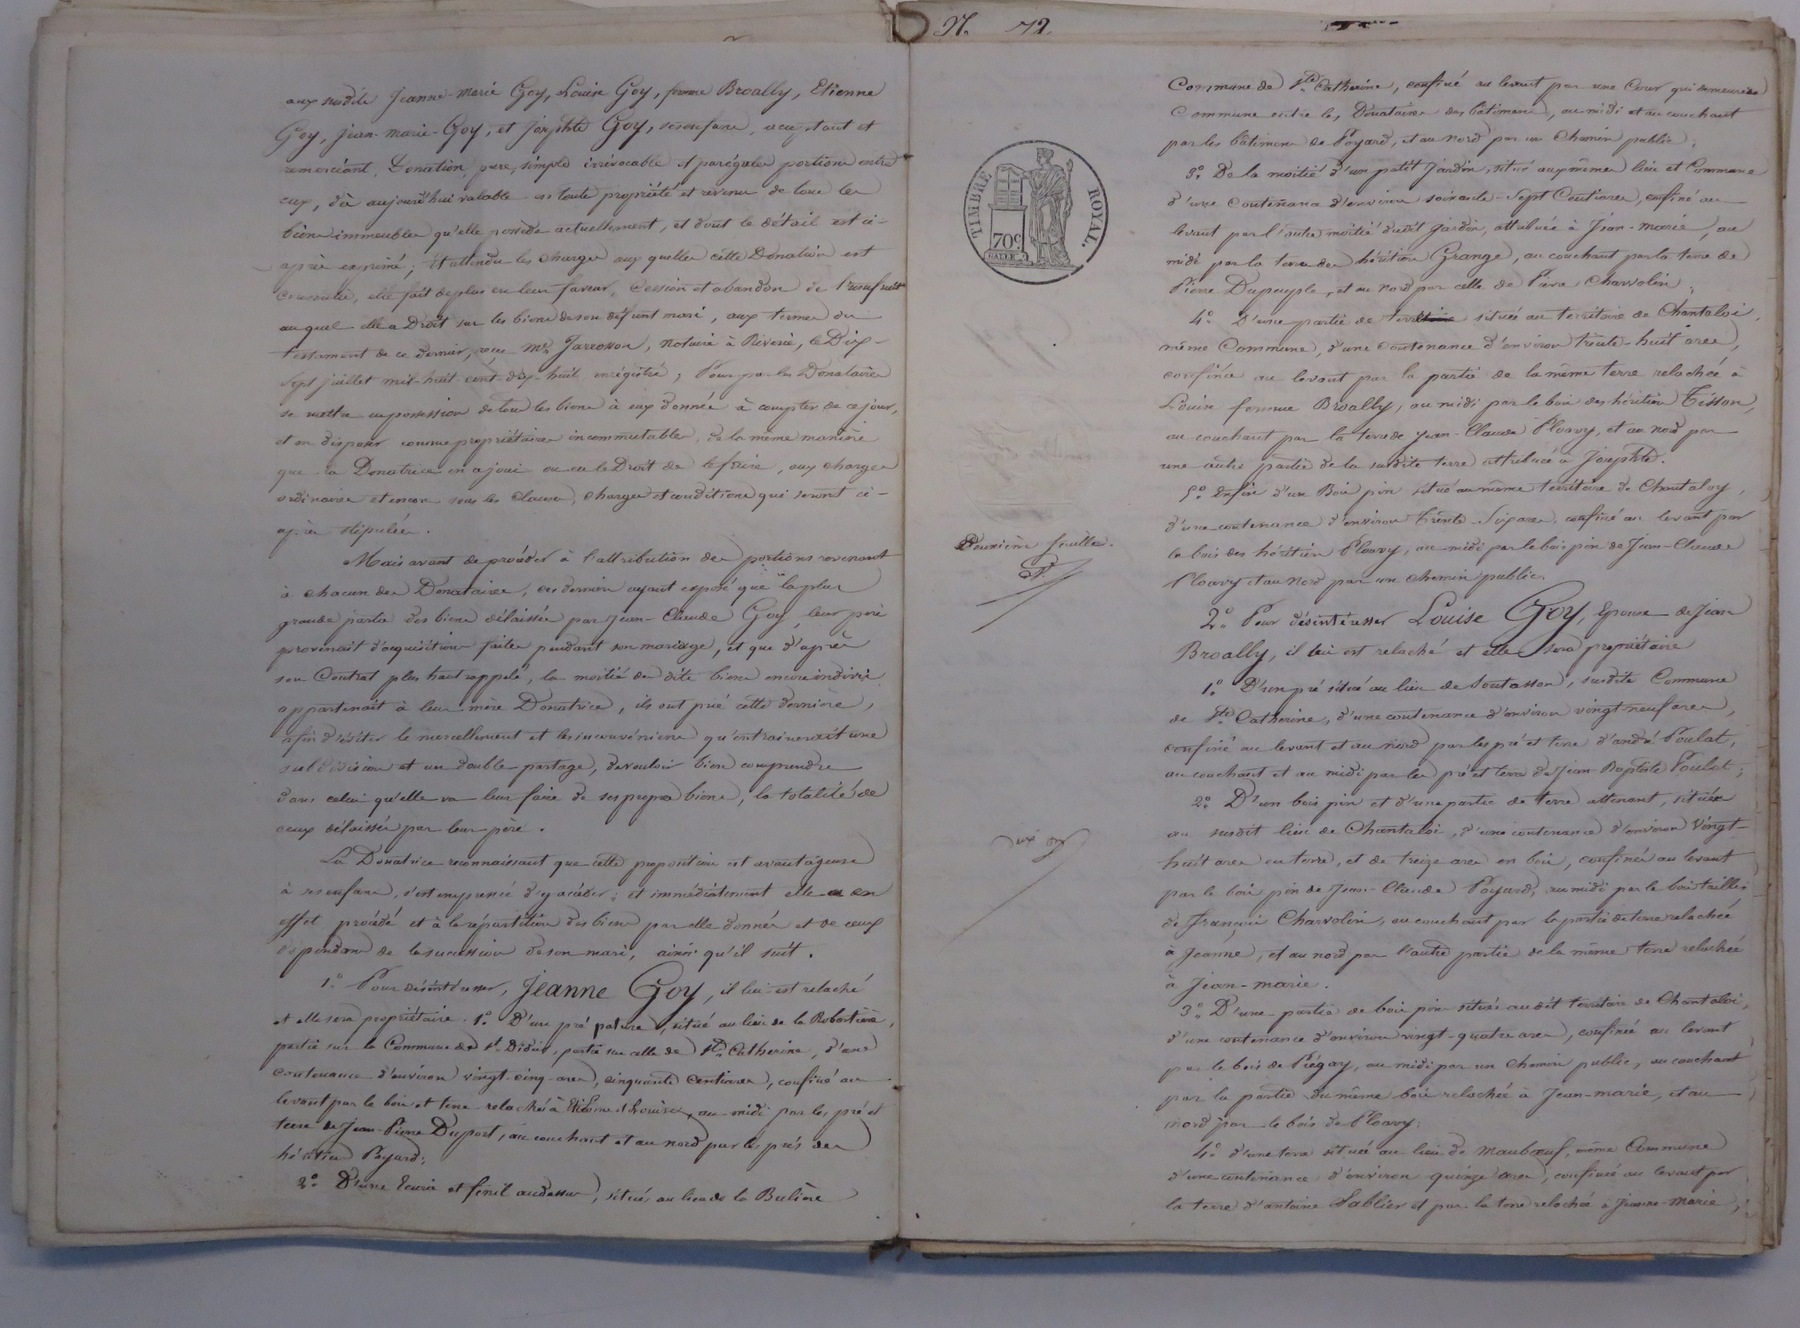 aux susdits Jeanne-Marie Goy, Louise Goy, femme Broally, Etienne
Goy, Jean-marie-Goy, et Josephte Goy, ses enfans, acceptant et
remerciant, Donation pure, simple irrévocable et par égales portions entre
eux, dès aujourd'hui valable en toute propriété et revenu de tous les
biens immeubles qu'elle possède actuellement, et dont le détail est ci-
après exprimé; et attendu les charges aux quelles cette Donation est
consentie, elle fait de plus en leur faveur, Cession et abandon de l'usufruit
auquel elle a Droit sur les biens de son défunt mari, aux termes du
testament de ce dernier, reçu Me Jarrosson, notaire à Riverie, le Dix-
sept juillet mil-huit cent-dix-huit enrégistré; Pour par les Donataires
se mettre en possession de tous les biens à eux donnés à compter de ce jour,
et en disposer comme propriétaires incommutables, de la même manière
que la Donatrice en a joui ou eu le Droit de le faire, aux charges
ordinaires et encore sous les clauses, charges et conditions qui seront ci-
après stipulées.
Mais avant de procéder à l'attribution des portions revenant
à chacun des Donataires, ces derniers ayant exposé que la plus
grande partie des biens délaissés par Jean-Claude Goy, leur père
provenait d'acquisitions faites pendant son mariage, et que d'après
son Contrat plus haut rappelé, la moitié des dits biens encore indivis
appartenait à leur mère Donatrice, ils ont prié cette dernière,
afin d'éviter le morcellement et les inconvéniens qu'entrainerait une
subdivision et un double partage, de vouloir bien comprendre
dans celui qu'elle va leur faire de ses propres biens, la totalité de
ceux délaissés par leur père.
La Donatrice reconnaissant que cette proposition est avantageuse
à ses enfans, s'est empressée d'y accéder; et immédiatement elle a en
effet procédé et à la répartition des biens par elle donnés et de ceux
dépendans de la succession de son mari, ainsi qu'il suit.
1.° Pour désintéresser, Jeanne Goy, il lui est relaché
et elle sera propriétaire. 1.° D'un pré pature, situé au lieu de la Robertière,
partie sur la Commune de St. Didier, partie sur celle de Ste. Catherine, d'une
contenance d'environ vingt-cinq-ares, cinquante centiares, confiné au
levant par le bois et terre relachés à Etienne et Louise, au midi par les pré et
terre de Jean-Pierre Duport, au couchant et au nord par les prés des
héritiers Poyard;
2.° D'une Ecurie et fenil audessus, situés au lieu de la Bulière
N. 72
TIMBRE ROYAL.
70c.
Deuxième feuille.
Commune de Ste. Catherine, confiné au levant par une Cour qui demeurera
Commune entre les Donataires des bâtimens, au midi et au couchant
par les bâtimens de Poyard, et au nord par un Chemin public;
3.° De la moitié d'un petit Jardin, situé aux mêmes lieu et Commune
d'une Contenance d'environ soixante-Sept Centiares, confiné au
levant par l'autre moitié dudit Jardin, attribuée à Jean-marie, au
midi par la terre des héritiers Grange, au couchant par la terre de
Pierre Dupeuple, et au Nord par celle de Charvolin;
4.° D'une partie de située au territoire de Chantaloi,
même Commune, d'une contenance d'environ trente-huit ares,
confinée au levant par la partie de la même terre relachée à
Louise femme Broally, au midi par le bois des héritiers Tisson,
au couchant par la terre de Jean-Claude Floury, et au nord par
une autre partie de la susdite terre attribuée à Josephte.
5.° Enfin d'un Bois pin situé au même territoire de Chantaloy,
d'une contenance d'environ trente-Six ares, confiné au levant par
le bois des héritiers Flouvy, au midi par le bois pin de Jean-Claude
Flouvy et au Nord par un chemin public.
2.° Pour désintéresser Louise Goy, épouse de Jean
Broally, il lui est relaché et elle sera propriétaire
1.° D'un pré situé au lieu de Soutasson, susdite Commune
de Ste. Catherine, d'une contenance d'environ vingt-neuf ares,
confiné au levant et au nord par les pré et terre d'andré Poulat,
au couchant et au midi par les pré et terre de Jean Baptiste Poulat;
2.° D'un bois pin et d'une partie de terre attenant, située
au susdit lieu de Chantaloi, d'une contenance d'environ Vingt-
huit ares en terre, et de treize ares en bois, confinés au levant
par le bois pin de Jean-Claude Poyard, au midi par le bois taillis
de françois Charvolin, au couchant par la partie de terre relachée
à Jeanne, et au nord par l'autre partie de la même terre relachée
à Jean-marie.
3.° D'une partie de bois pin située audit territoire de Chantaloi,
d'une contenance d'environ vingt-quatre ares, confinée au levant
par le bois de Piégay, au midi par un Chemin public, au couchant
par la partie du même bois relachée à Jean-marie, et au
nord par le bois de Flouvy;
4.° d'une terre située au lieu de Maubœuf, même Commune
d'une contenance d'environ quinze ares, confinée au levant par
la terre d'antoine Sablier et par la terre relachée à Jeanne-Marie,